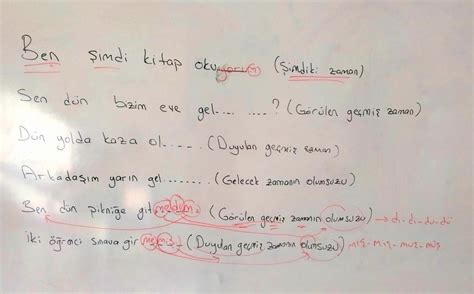 Ben şimdi kitap okuyorum (Şimdiki zaman)
Sen dün bizim eve gel.... .....? (Görülen geçmiş zaman)
Dün yolda kaza ol..... (Duyulan geçmiş zaman)
Arkadaşım yarın gel....... (Gelecek zamanın olumsuzu)
Ben dün pikniğe gitmedim. (Görülen geçmiş zamanın olumsuzu) → dı-di-du-dü
İki öğrenci sınava girmemiş. (Duyulan geçmiş zamanın olumsuzu) mış-miş-muş-müş